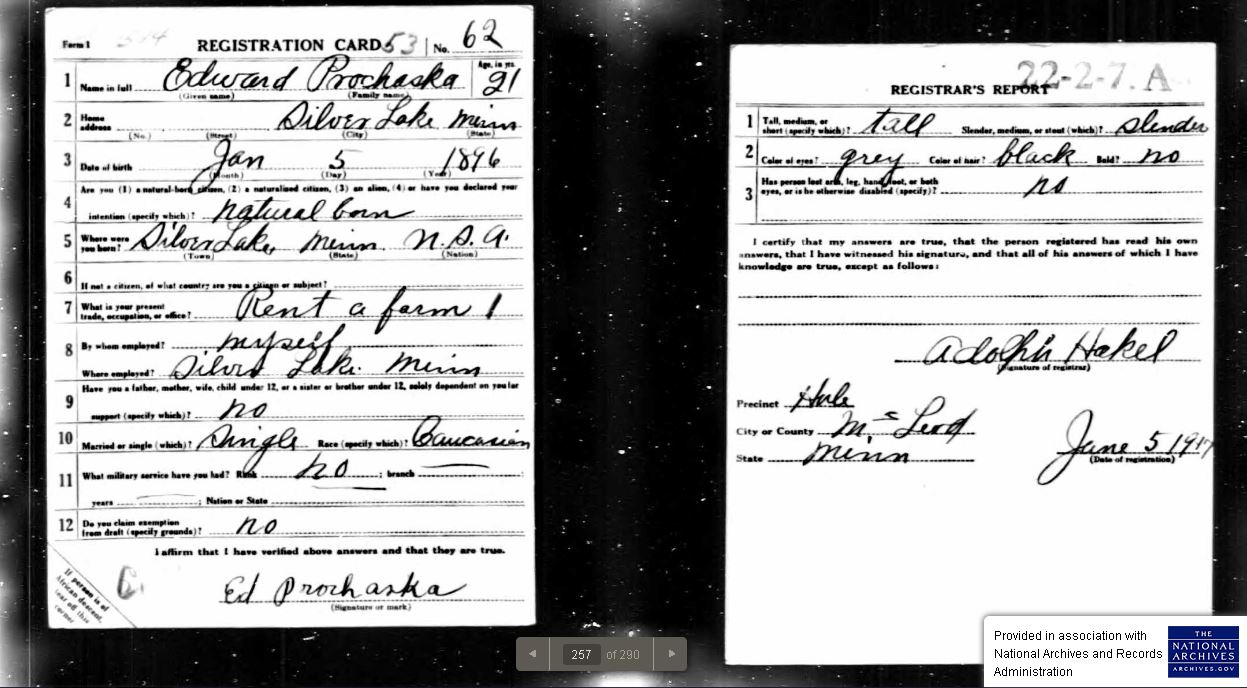 Form 1 REGISTRATION CARD 53 No. 62
1 Name in full Edward Prochaska Age, in yrs. 21
(Given name) (Family name)
2 Home address Silver Lake Minn
(No.) (Street) (City) (State)
3 Date of birth Jan 5 1896
(Month) (Day) (Year)
Are you (1) a natural-born citizen, (2) a naturalized citizen, (3) an alien, (4) or have you declared your
4 intention (specify which)? natural born
5 Where were you born? Silver Lake Minn U.S.A.
(Town) (State) (Nation)
6 If not a citizen, of what country are you a citizen or subject?
7 What is your present trade, occupation, or office? Rent a farm 1
8 By whom employed? myself
Where employed? Silver Lake Minn
Have you a father, mother, wife, child under 12, or a sister or brother under 12, solely dependent on you for
9 support (specify which)? no
10 Married or single (which)? Single Race (specify which)? Caucasian
11 What military service have you had? Rank no ; branch
years ; Nation or State
12 Do you claim exemption from draft (specify grounds)? no
I affirm that I have verified above answers and that they are true.
Ed Prochaska
(Signature or mark)
If person is of
African descent,
tear off this
corner
22-2-7. A
REGISTRAR'S REPORT
1 Tall, medium, or short (specify which)? tall Slender, medium, or stout (which)? slender
2 Color of eyes? grey Color of hair? black Bald? no
3 Has person lost arm, leg, hand, foot, or both eyes, or is he otherwise disabled (specify)? no
I certify that my answers are true, that the person registered has read his own
answers, that I have witnessed his signature, and that all of his answers of which I have
knowledge are true, except as follows:
Adolph Hakel
(Signature of registrar)
Precinct Hale
City or County McLeod
State Minn
June 5 1917
(Date of registration)
257 of 290
Provided in association with
National Archives and Records
Administration
THE
NATIONAL
ARCHIVES
ARCHIVES.GOV